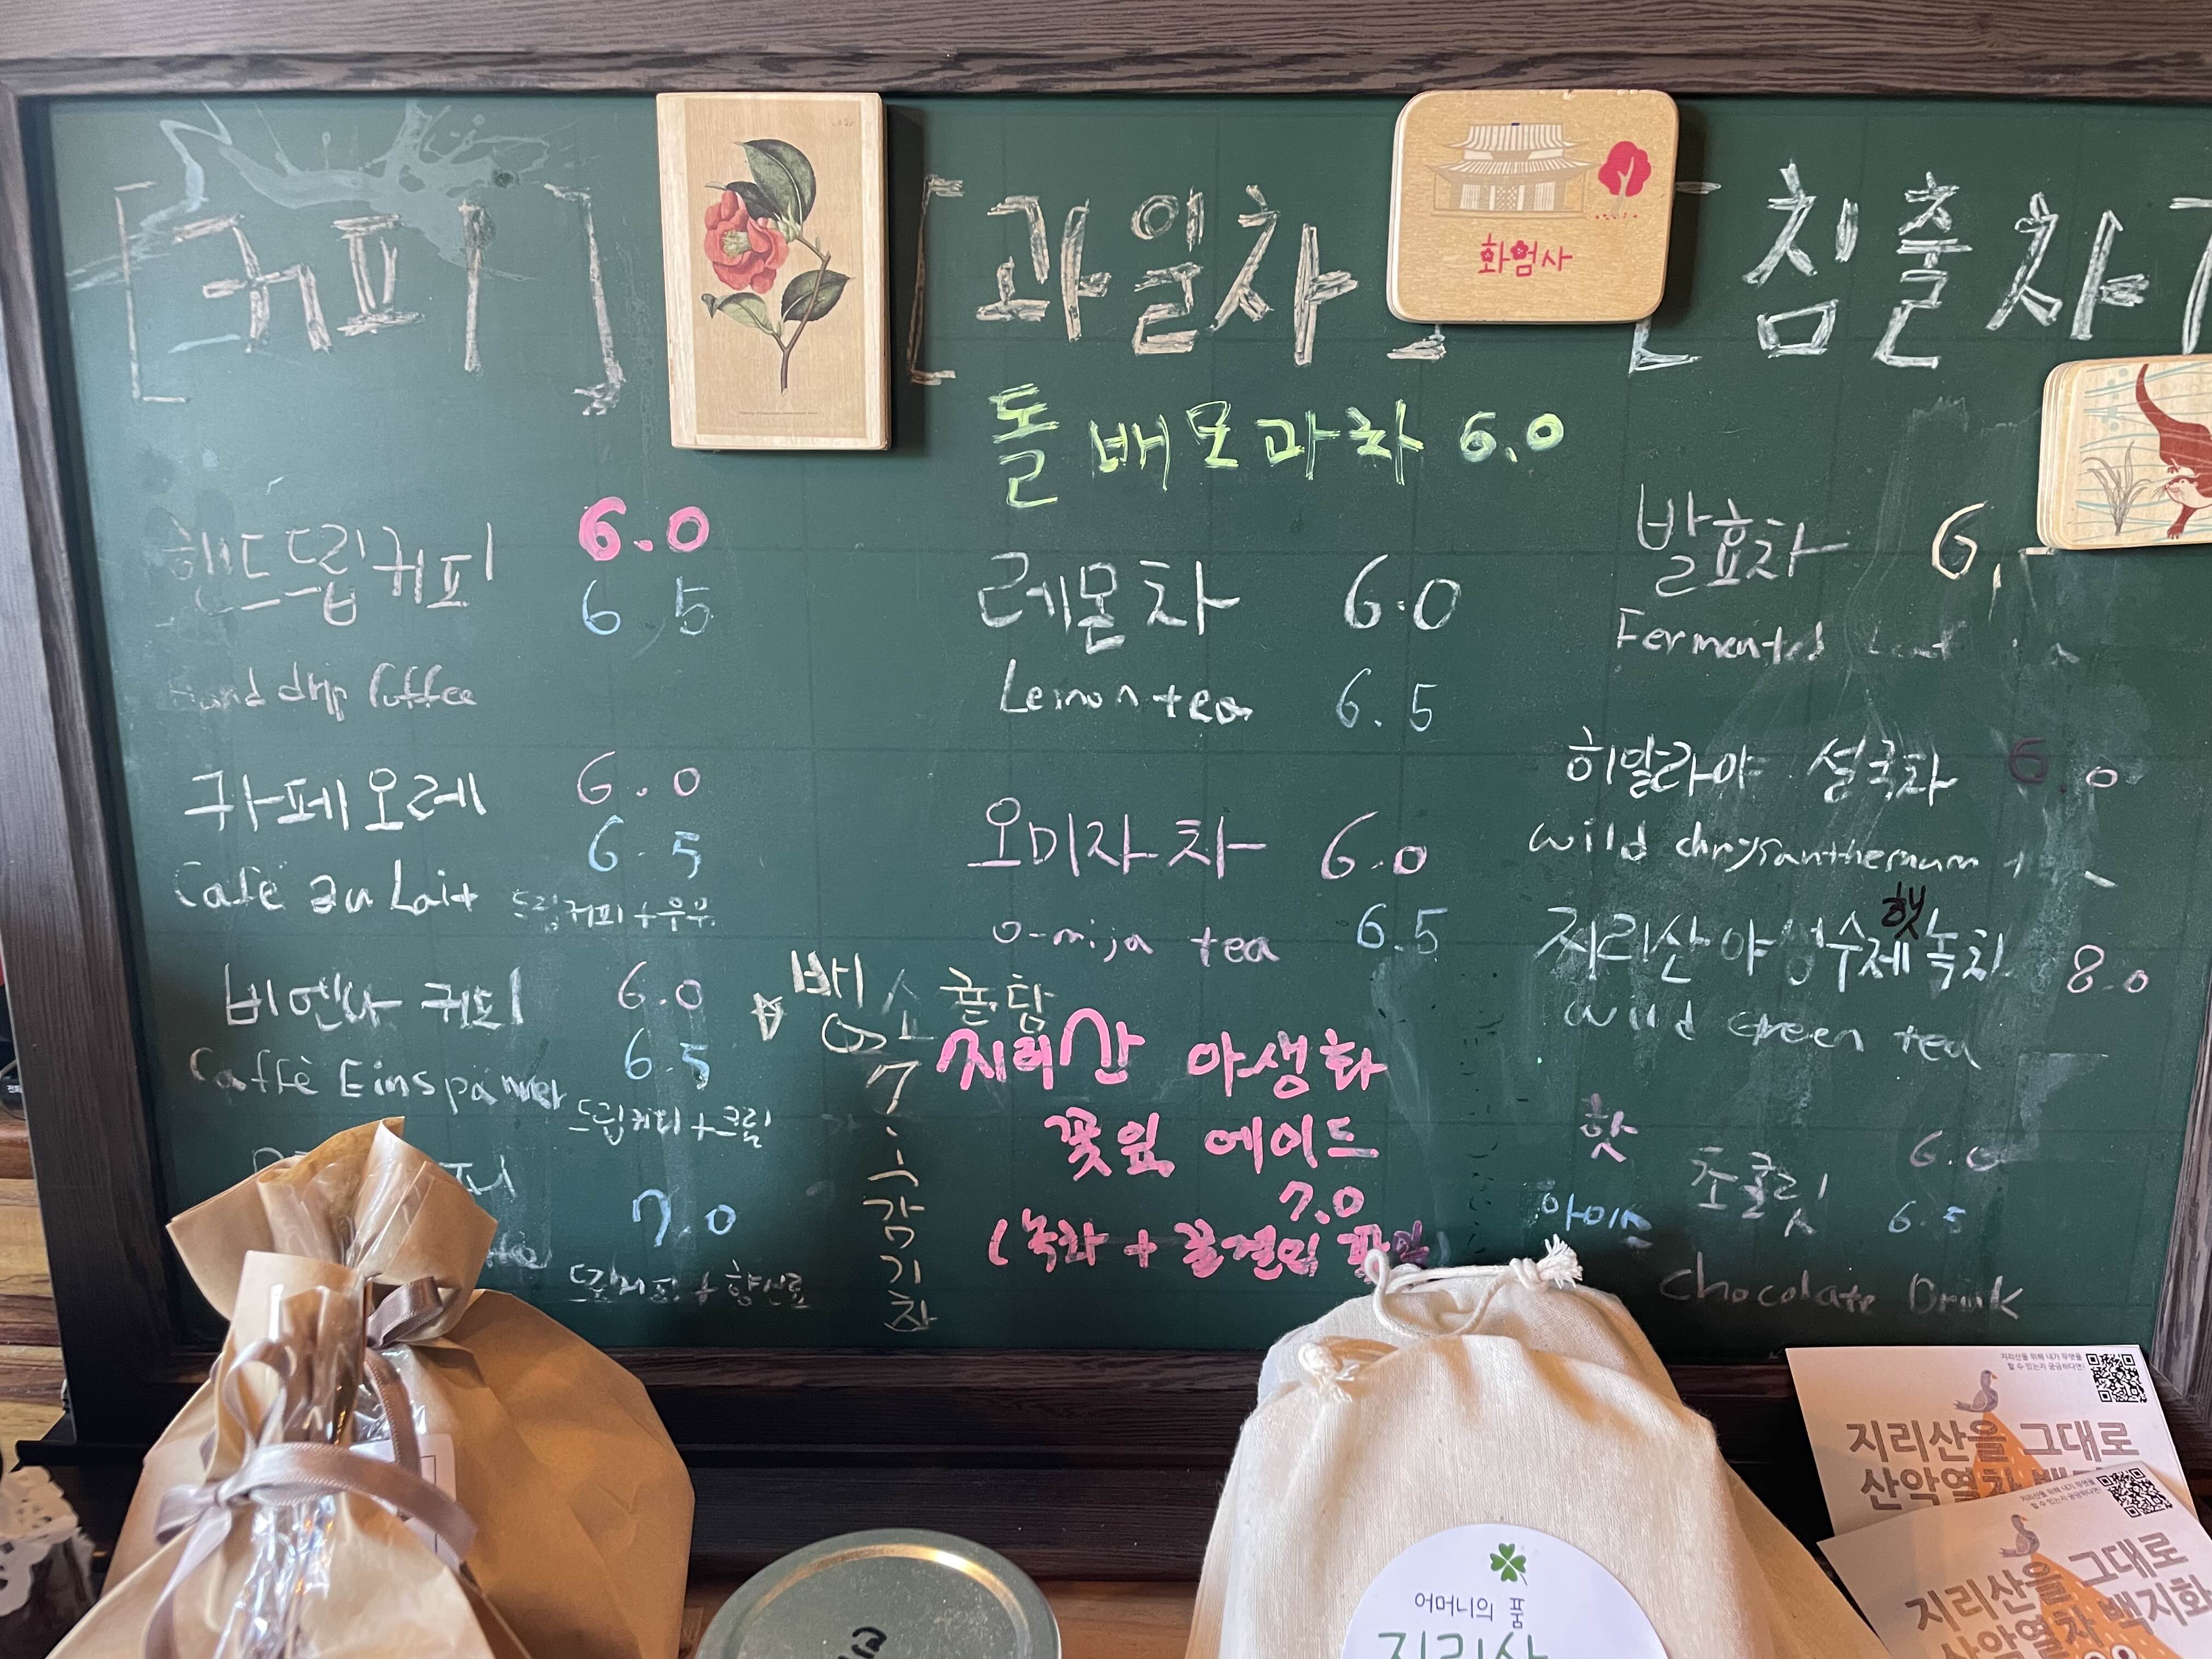 [커피]
핸드드립커피 6.0
6.5
Hand drip Coffee
카페오레 6.0
6.5
Café au Lait 드립커피+우유
비엔나 커피 6.0
6.5
Caffè Einspänner 드립커피+크림
7.0
[과일차]
돌배모과차 6.0
레몬차 6.0
Lemon tea 6.5
오미자차 6.0
o-mija tea 6.5
지리산 야생화
꽃잎 에이드
7.0
감기차
[침출차]
발효차 6.
Fermented
히말라야 설국차 6.0
wild chrysanthemum
햇
지리산야생수제녹차 8.0
wild Green tea
핫
아이스
초콜릿 6.0
6.5
Chocolate Drink
화엄사
어머니의 품
지리산
지리산을 위해 내가 무엇을
할 수 있는지 궁금하다면!
지리산을 그대로
산악열차
지리산을 위해 내가 무엇을
할 수 있는지 궁금하다면!
지리산을 그대로
산악열차 백지화